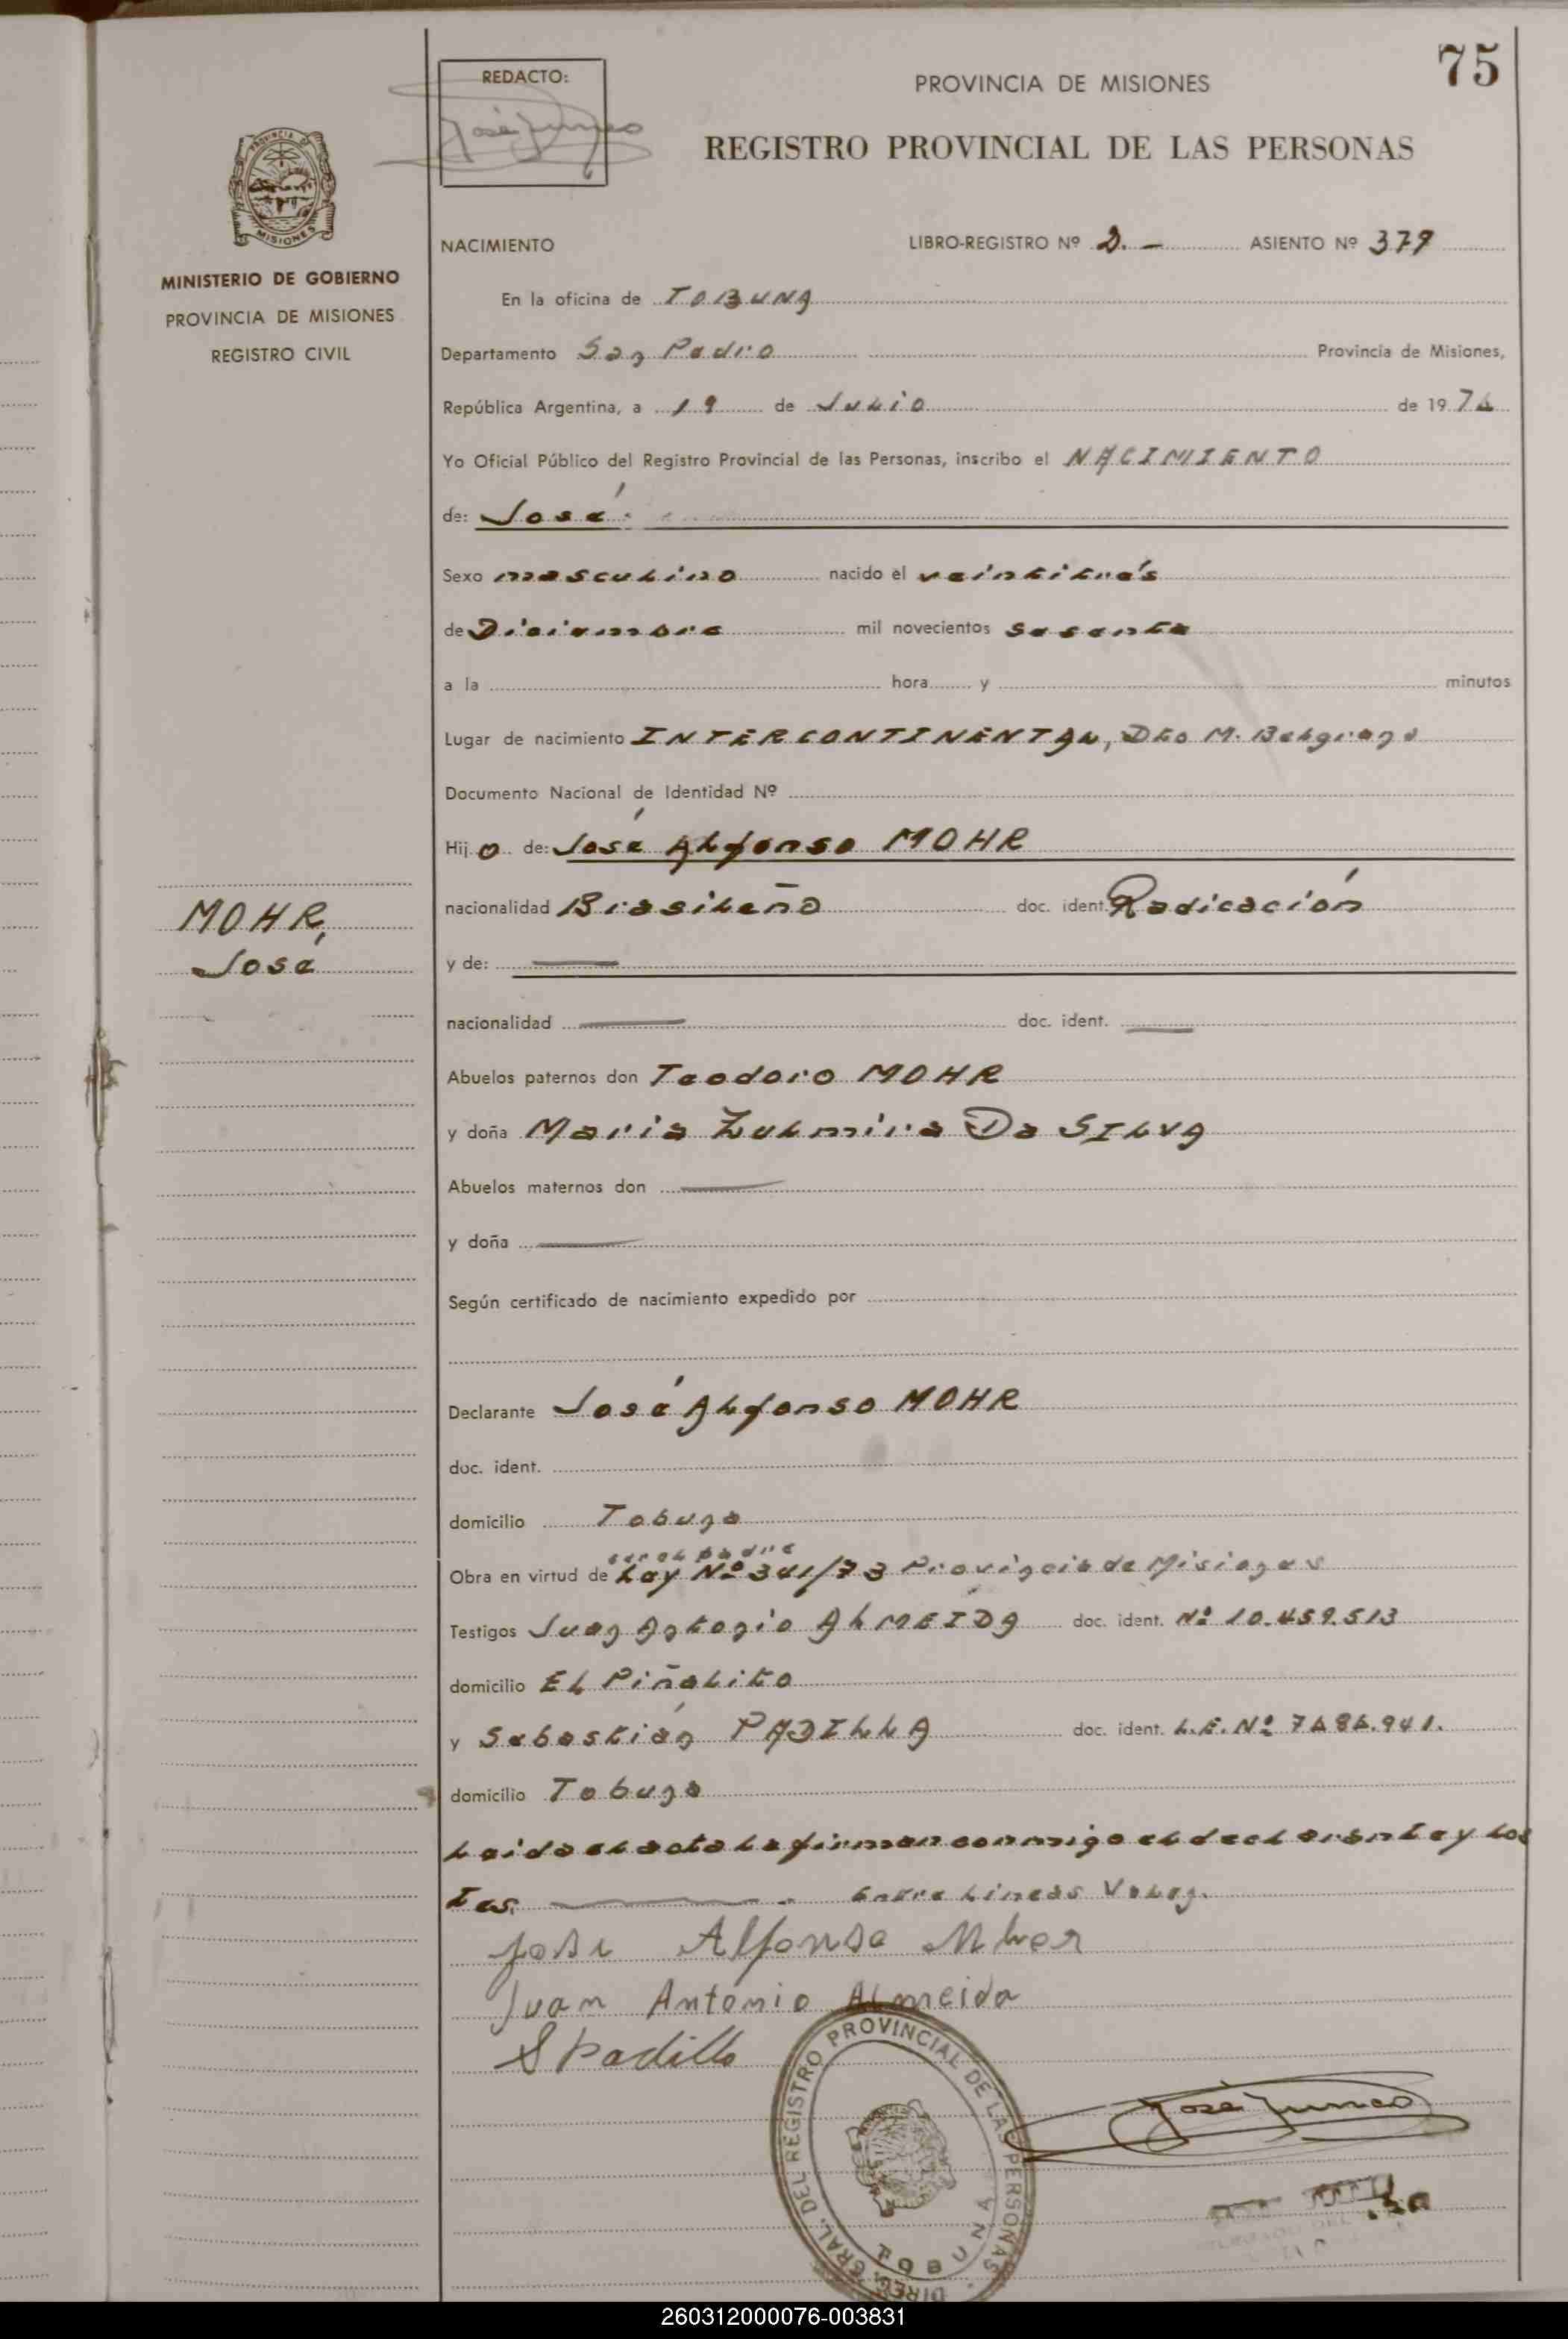 75
REDACTO:
PROVINCIA DE MISIONES
REGISTRO PROVINCIAL DE LAS PERSONAS
PROVINCIA D
MISIONES
MINISTERIO DE GOBIERNO
PROVINCIA DE MISIONES
REGISTRO CIVIL
NACIMIENTO LIBRO-REGISTRO Nº 2. — ASIENTO Nº 379
En la oficina de TOBUNA
Departamento San Pedro Provincia de Misiones,
República Argentina, a 19 de Julio de 1974
Yo Oficial Público del Registro Provincial de las Personas, inscribo el NACIMIENTO
de: José
Sexo masculino nacido el veintitrés
de Diciembre mil novecientos sesenta
a la hora y minutos
Lugar de nacimiento INTERCONTINENTAL, Dto M. Belgrano
Documento Nacional de Identidad Nº
Hijo de: José Alfonso MOHR
MOHR,
José
nacionalidad Brasileño doc. ident. Radicación
y de: —
nacionalidad — doc. ident. —
Abuelos paternos don Teodoro MOHR
y doña Maria Zulmira Da SILVA
Abuelos maternos don —
y doña —
Según certificado de nacimiento expedido por
Declarante José Alfonso MOHR
doc. ident.
domicilio Tobuna
ser el padre
Obra en virtud de Ley Nº 341/73 Provincia de Misiones
Testigos Juan Antonio ALMEIDA doc. ident. Nº 10.459.513
domicilio El Piñalito
y Sebastián PADILLA doc. ident. L.E. Nº 7484.941.
domicilio Tobuna
Leida el acta la firman conmigo el declarante y los
Tes. — Entre Lineas Valen.
José Alfonso Mher
Juan Antonio Almeida
S Padilla
DIREC. GRAL. DEL REGISTRO PROVINCIAL DE LAS PERSONAS
TOBUNA
260312000076-003831